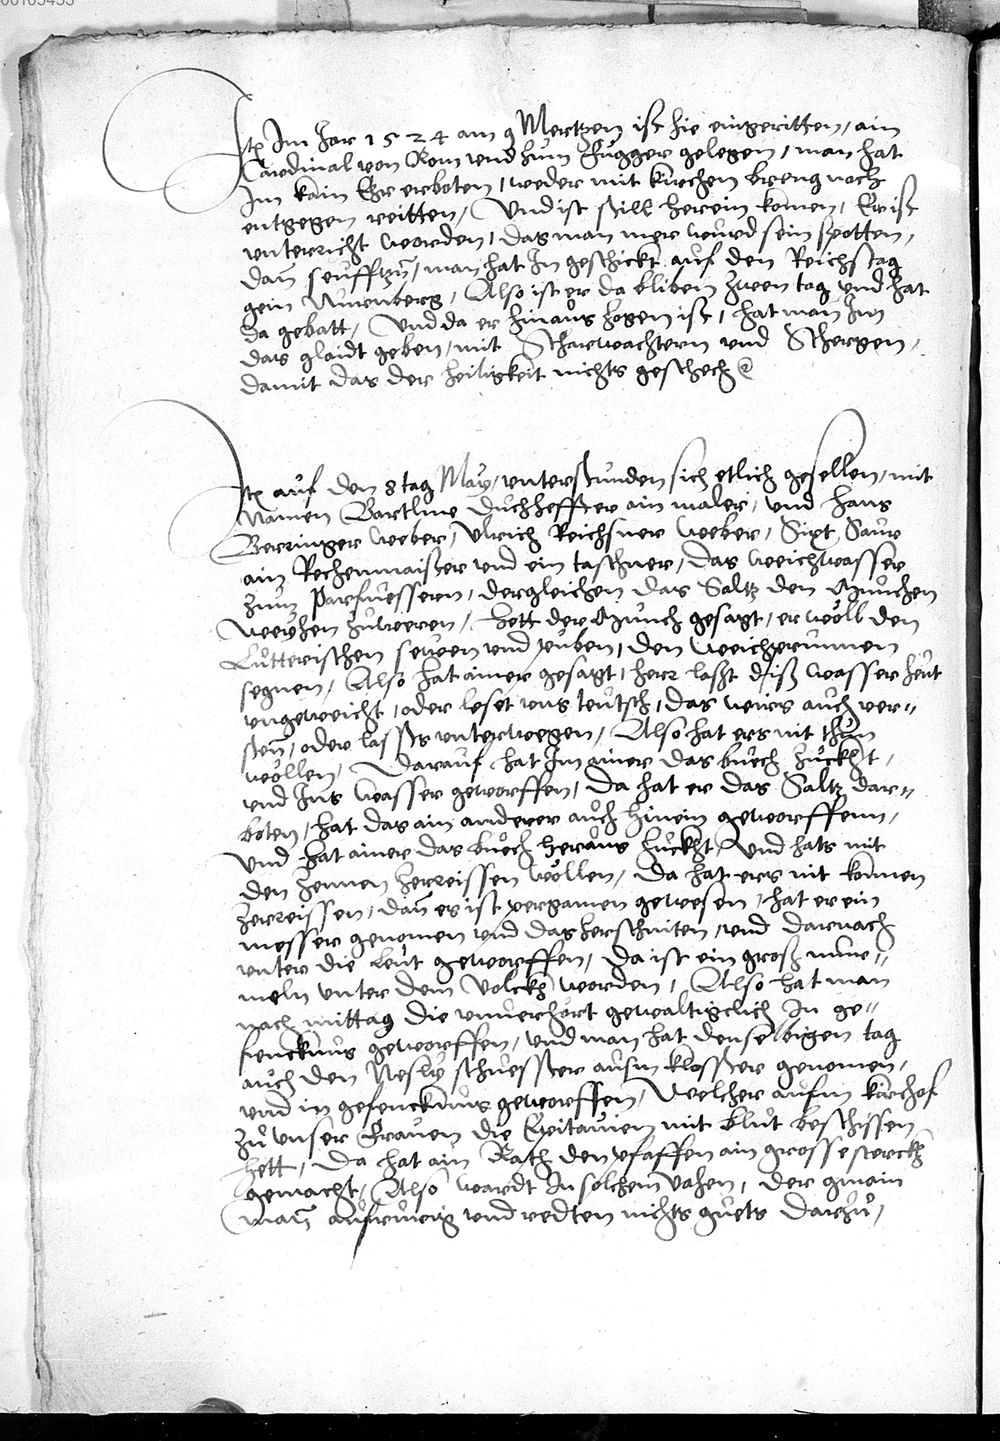 00105453
Itē Im Jar 1524 am 9 Mertzen ist hie eingeritten, ain
Cardinal von Rom vnd zum Fugger gelegen, man hat
Im kain Ehr erboten, weder mit kirchen breng noch
entgegen reitten, Vnd ist still herein komen, Er ist
vnterricht worden, das man mer wurd sein spotten,
dañ seufftzñ, man hat In geschickt auf den Reichstag
gein Nurenberg, Also ist er da bliben zween tag vnd hat
da gebatt, Vnd da er hinaus zogen ist, hat man Im
das glaidt geben, mit Scharwachtern vnd Schergen,
damit das der heiligkeit nichts geschech
Itē auf den 8 tag May, vnterstunden sich etlich gesellen, mit
Namen Bartlme Duchheffter ain maler, vnd hans
Berringer weber, Vlrich Reichsner weber, Sixt Saur
ain Rechenmaister vnd ein taschner, das weichwasser
zum Parfuessern, dergleichen das Saltz den Munchen
weyhen zuweeren, Hett der Munch gesagt, er wöll den
Lutterischen seween vnd puben, den weichprunnen
segnen, Also hat ainer gesagt, herr lasst diß wasser heut
vngeweicht, oder leset vns teutsch, das wirs auch ver=
sten, oder lassts vnterwegen, Also hat ers nit thun
wöllen, Darauf hat Im ainer das buech zuckht,
vnd Ins wasser geworffen, Da hat er das Saltz dar=
boten, hat das ain anderer auch hinein geworffenn,
Vnd hat ainer das buech heraus zuckht, Vnd hats mit
den zennen zerreissen wöllen, Da hat ers nit konnen
zerreissen, dañ es ist pergamen gewesen, hat er ein
messer genomen vnd das zerschniten, vnd darnach
vnter die leut geworffen, Da ist ein groß mur=
meln vnter dem Volckh worden, Also hat man
nach mittag die vnuerhört gewaltigclich In ge=
fencknus geworffen, vnd man hat denselbigen tag
auch den Nesly schuesster ausm kloster genomen,
vnd in gefencknus geworffen, Welcher aufm kirchof
zu vnser Frauen die Epitavien mit blut beschissen
hett, Da hat ain Rath den pfaffen ain grosse sterckh
gemacht, Also wardt In solchem vahen, der gmain
man auffruerig vnd redten nichts guets darzu,